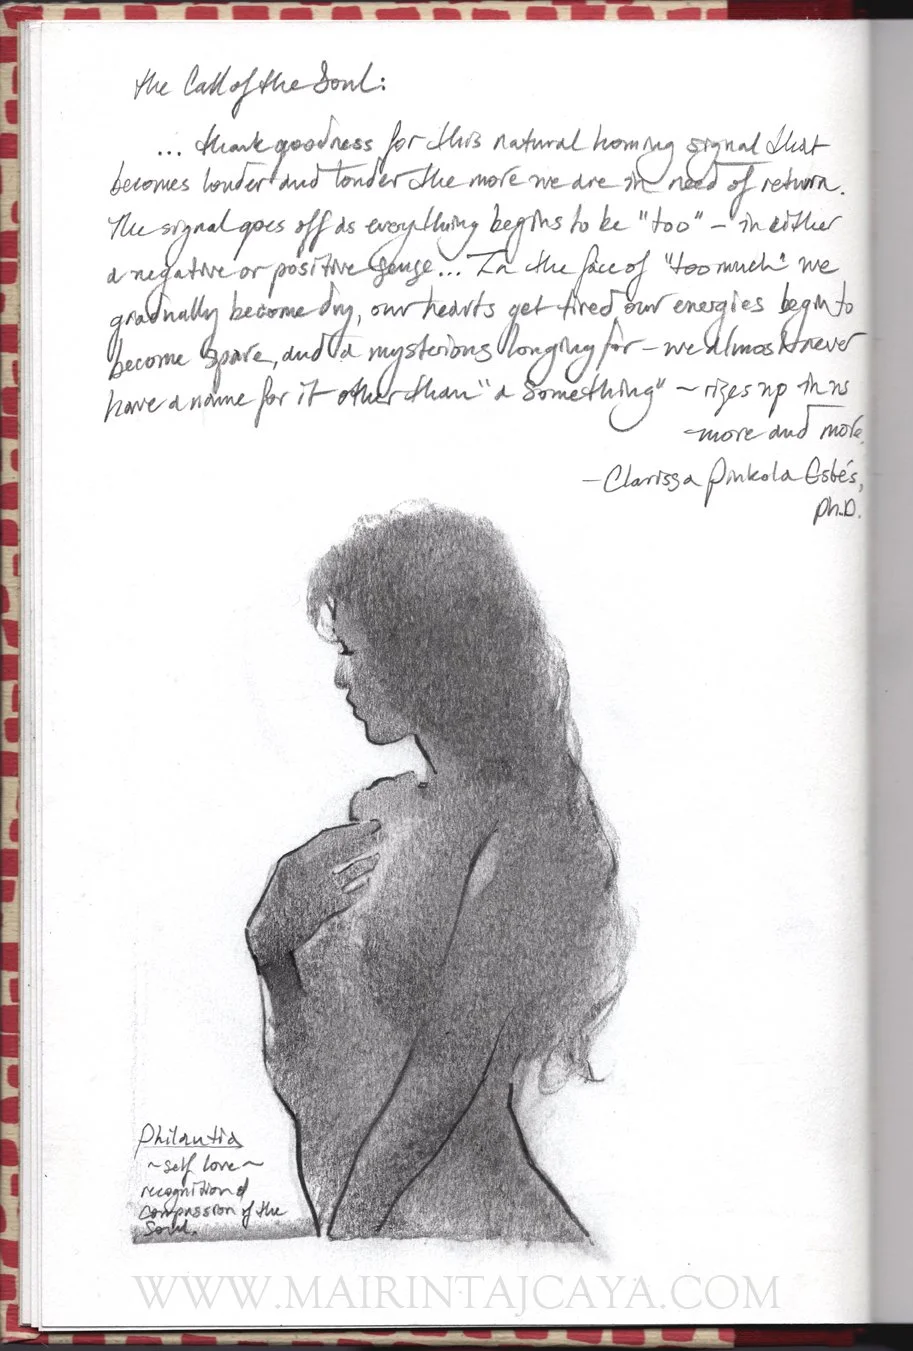 the Call of the Soul:
... thank goodness for this natural homing signal that
becomes louder and louder the more we are in need of return.
The signal goes off as everything begins to be "too" – in either
a negative or positive sense... In the face of "too much" we
gradually become dry, our hearts get tired our energies begin to
become spare, and a mysterious longing for – we almost never
have a name for it other than "a something" ~ rises up in us
more and more.
– Clarissa Pinkola Estés,
Ph.D.
Philautia
~self love~
recognition of
compassion of the
Soul.
WWW.MAIRINTAJCAYA.COM